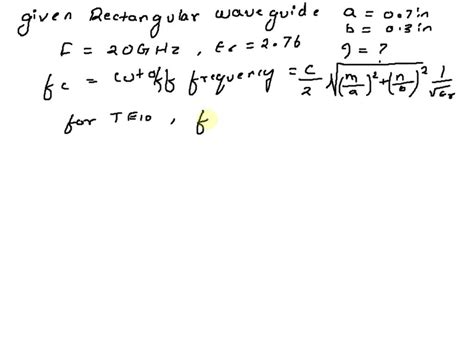 given Rectangular waveguide a = 0.7in
b = 0.3in
F = 20GHz , Er = 2.76 g = ?
fc = cutoff frequency = c/2 √((m/a)²+(n/b)²) 1/√εr
for TE10 , f